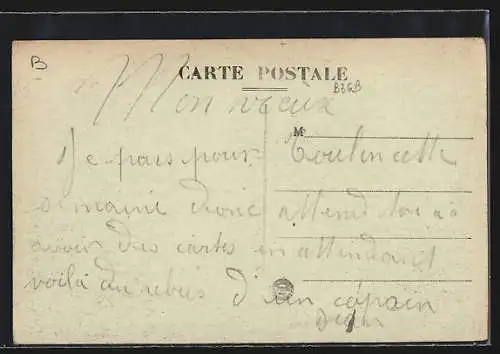 B
CARTE POSTALE
B36B
Mon vieux
M
Je pars pour
semaine donc attend toi à
avoir des cartes en attendant
voilà du rebus d'un copain